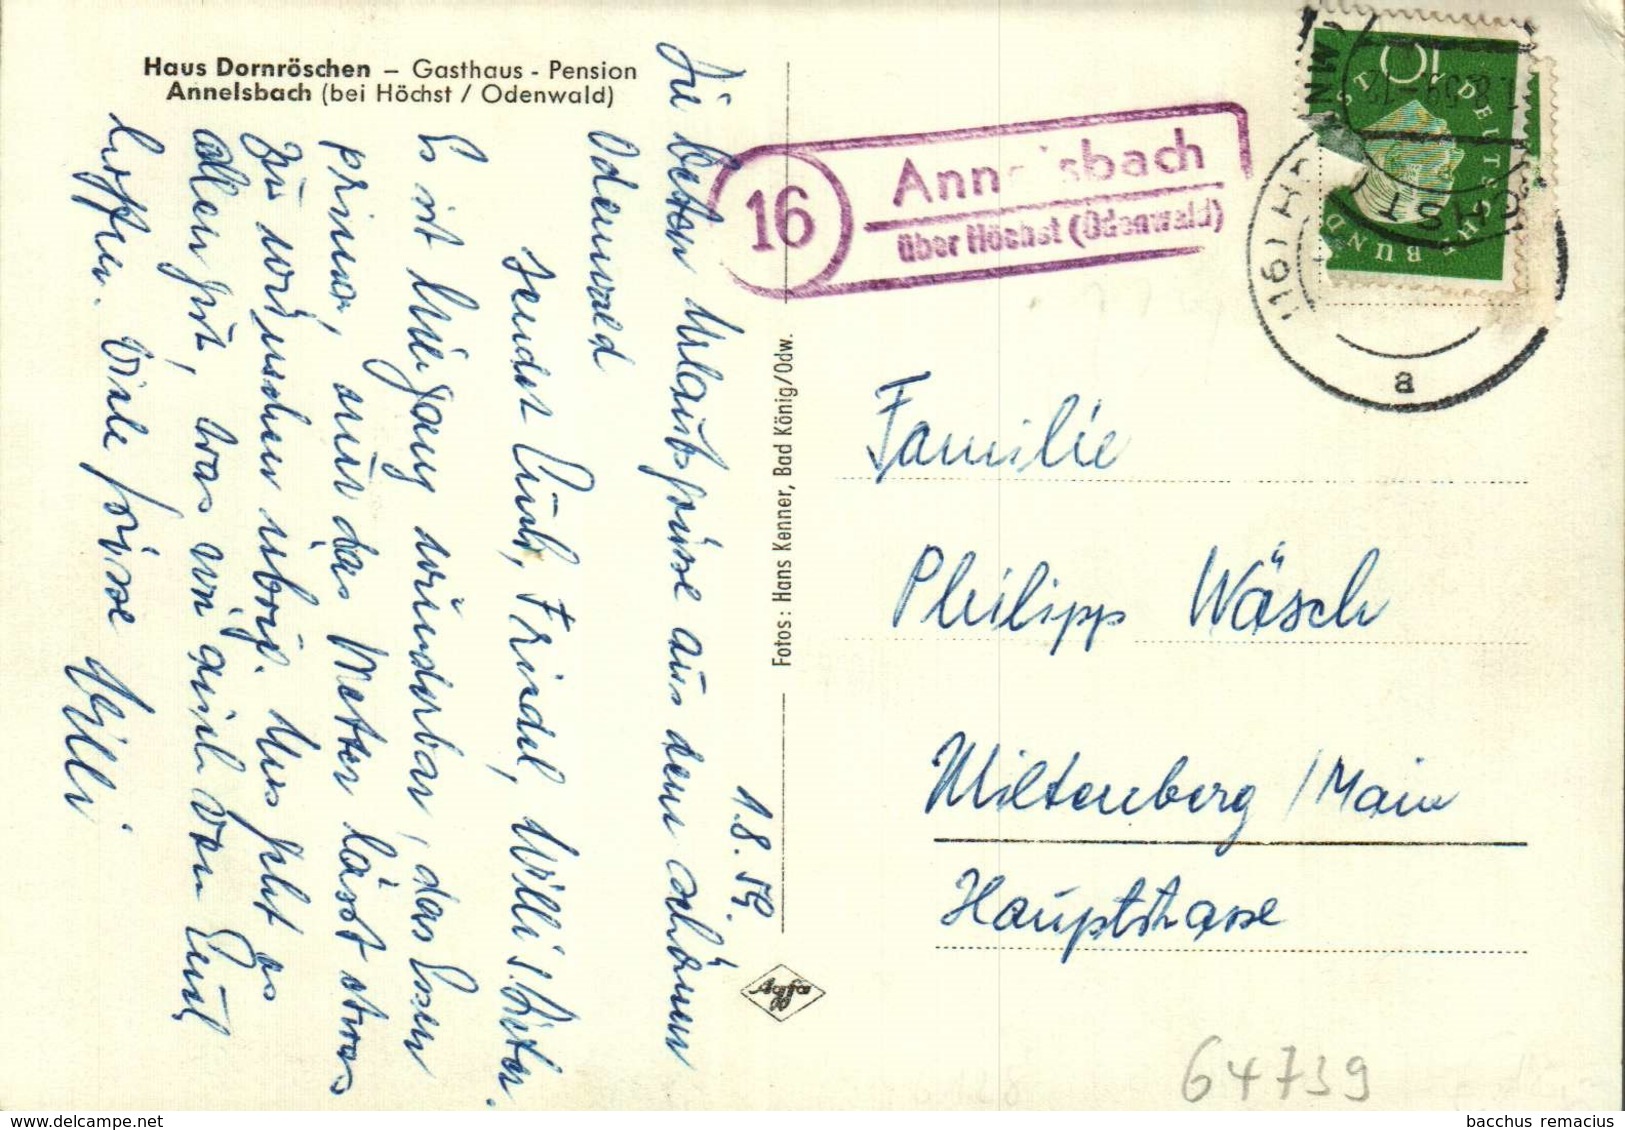 Haus Dornröschen – Gasthaus - Pension
Annelsbach (bei Höchst / Odenwald)
1.8.59.
Die besten Urlaubsgrüsse aus dem schönen
Odenwald
sendet Euch, Friedel, Willi u. Peter.
Es ist hier ganz wunderbar, das Essen
prima, nur das Wetter lässt etwas
zu wünschen übrig. Uns geht es
allen gut, was wir auch von Euch
hoffen. Viele Grüsse Willi
Fotos: Hans Kenner, Bad König/Odw.
Agfa
16
Annelsbach
über Höchst (Odenwald)
DEUTSCHE BUNDESPOST
(16) HÖCHST
1.8.59-12
a
Familie
Philipp Wäsch
Miltenberg /Main
Hauptstrasse
64739
bacchus remacius